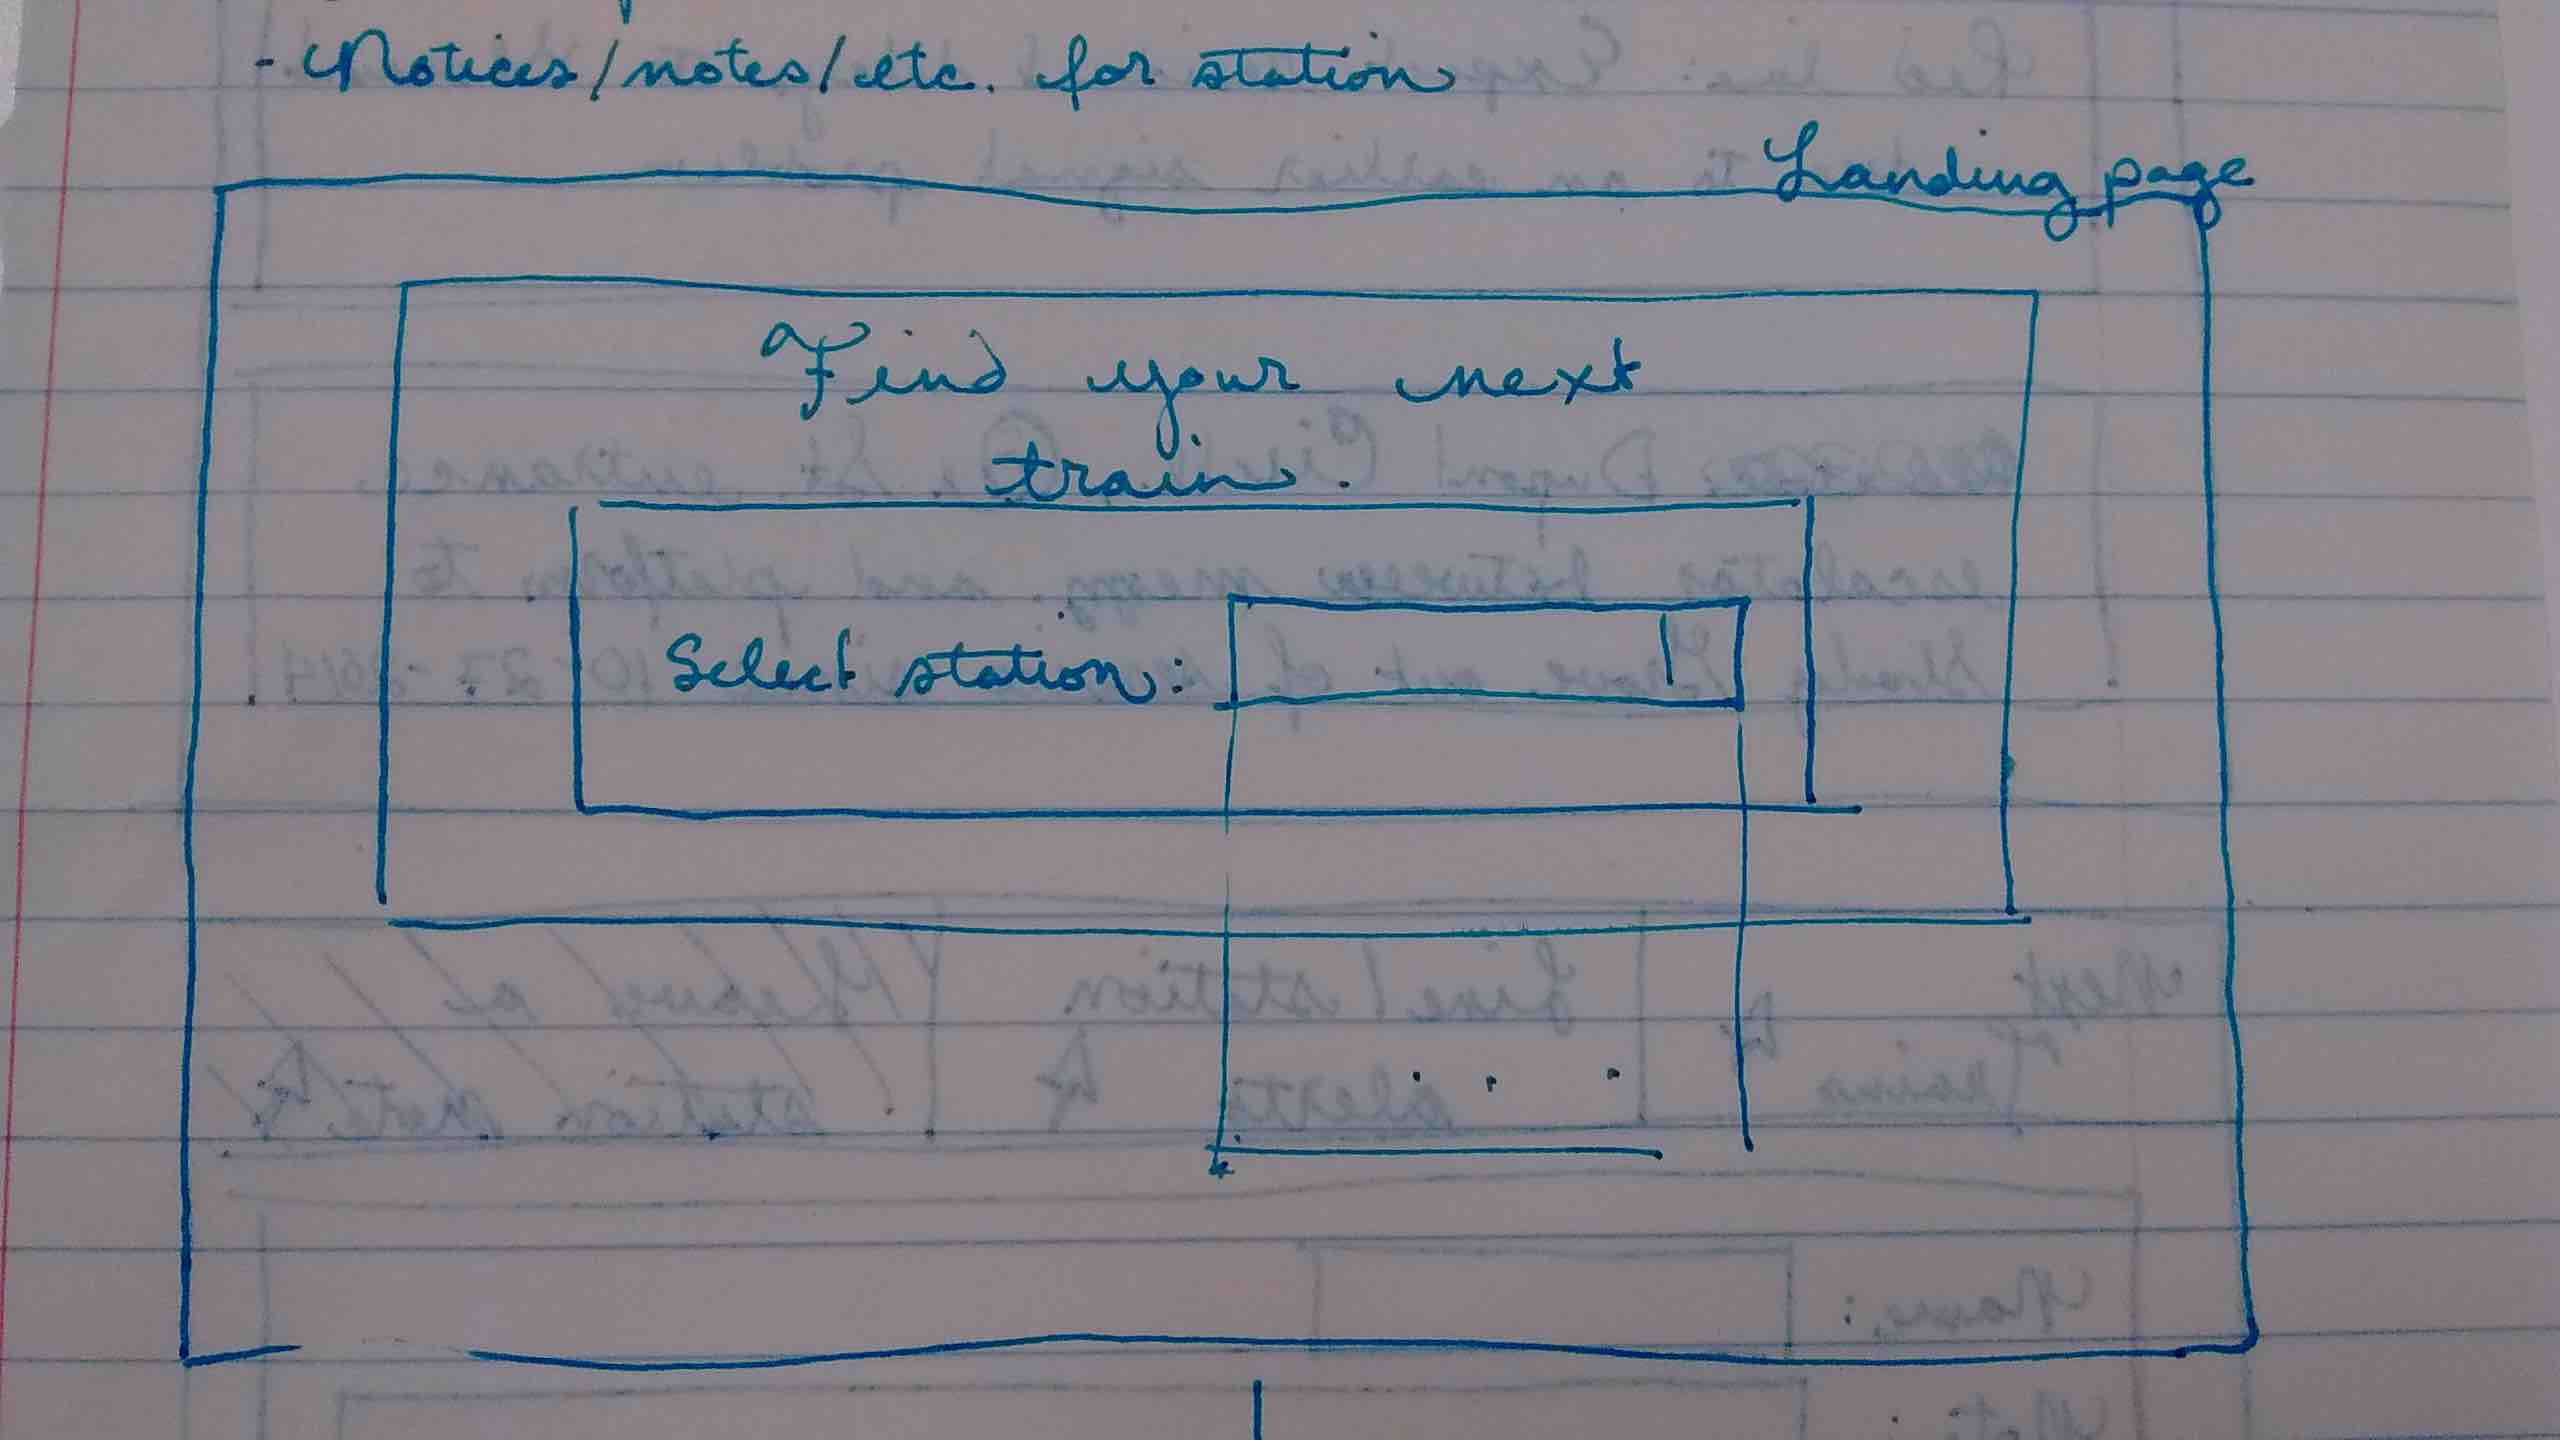 - Notices/notes/etc. for station
Landing page
Find your next
train.
Select station:
. . .